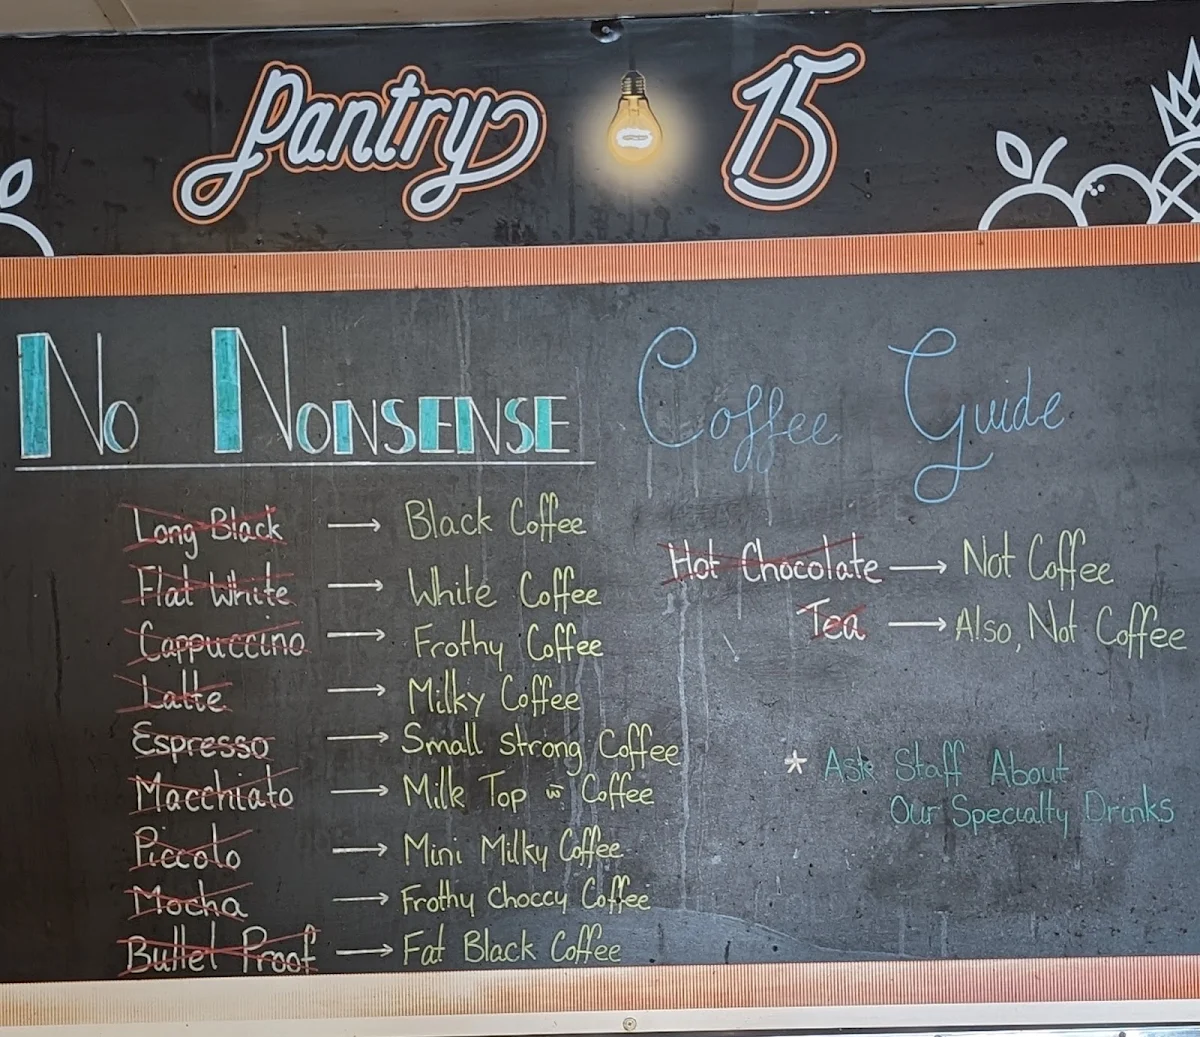 Pantry 15
No Nonsense Coffee Guide
Long Black → Black Coffee
Flat White → White Coffee
Cappuccino → Frothy Coffee
Latte → Milky Coffee
Espresso → Small Strong Coffee
Macchiato → Milk Top w Coffee
Piccolo → Mini Milky Coffee
Mocha → Frothy Choccy Coffee
Bullet Proof → Fat Black Coffee
Hot Chocolate → Not Coffee
Tea → Also, Not Coffee
* Ask Staff About
Our Specialty Drinks